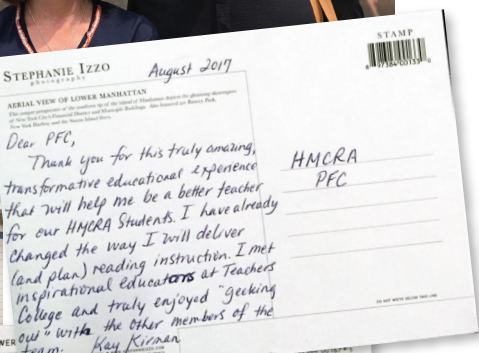 STEPHANIE IZZO
photography
August 2017
STAMP
AERIAL VIEW OF LOWER MANHATTAN
This unique perspective of the southern tip of the island of Manhattan depicts the gleaming skyscrapers
of New York City's Financial District and Municipal Buildings. Also featured are Battery Park,
New York Harbor, and the Staten Island ferry.
Dear PFC,
Thank you for this truly amazing,
transformative educational experience
that will help me be a better teacher
for our HMCRA Students. I have already
changed the way I will deliver
(and plan) reading instruction. I met
inspirational educators at Teachers
College and truly enjoyed "geeking
out" with the other members of the
team. Kay Kirman
HMCRA
PFC
DO NOT WRITE BELOW THIS LINE